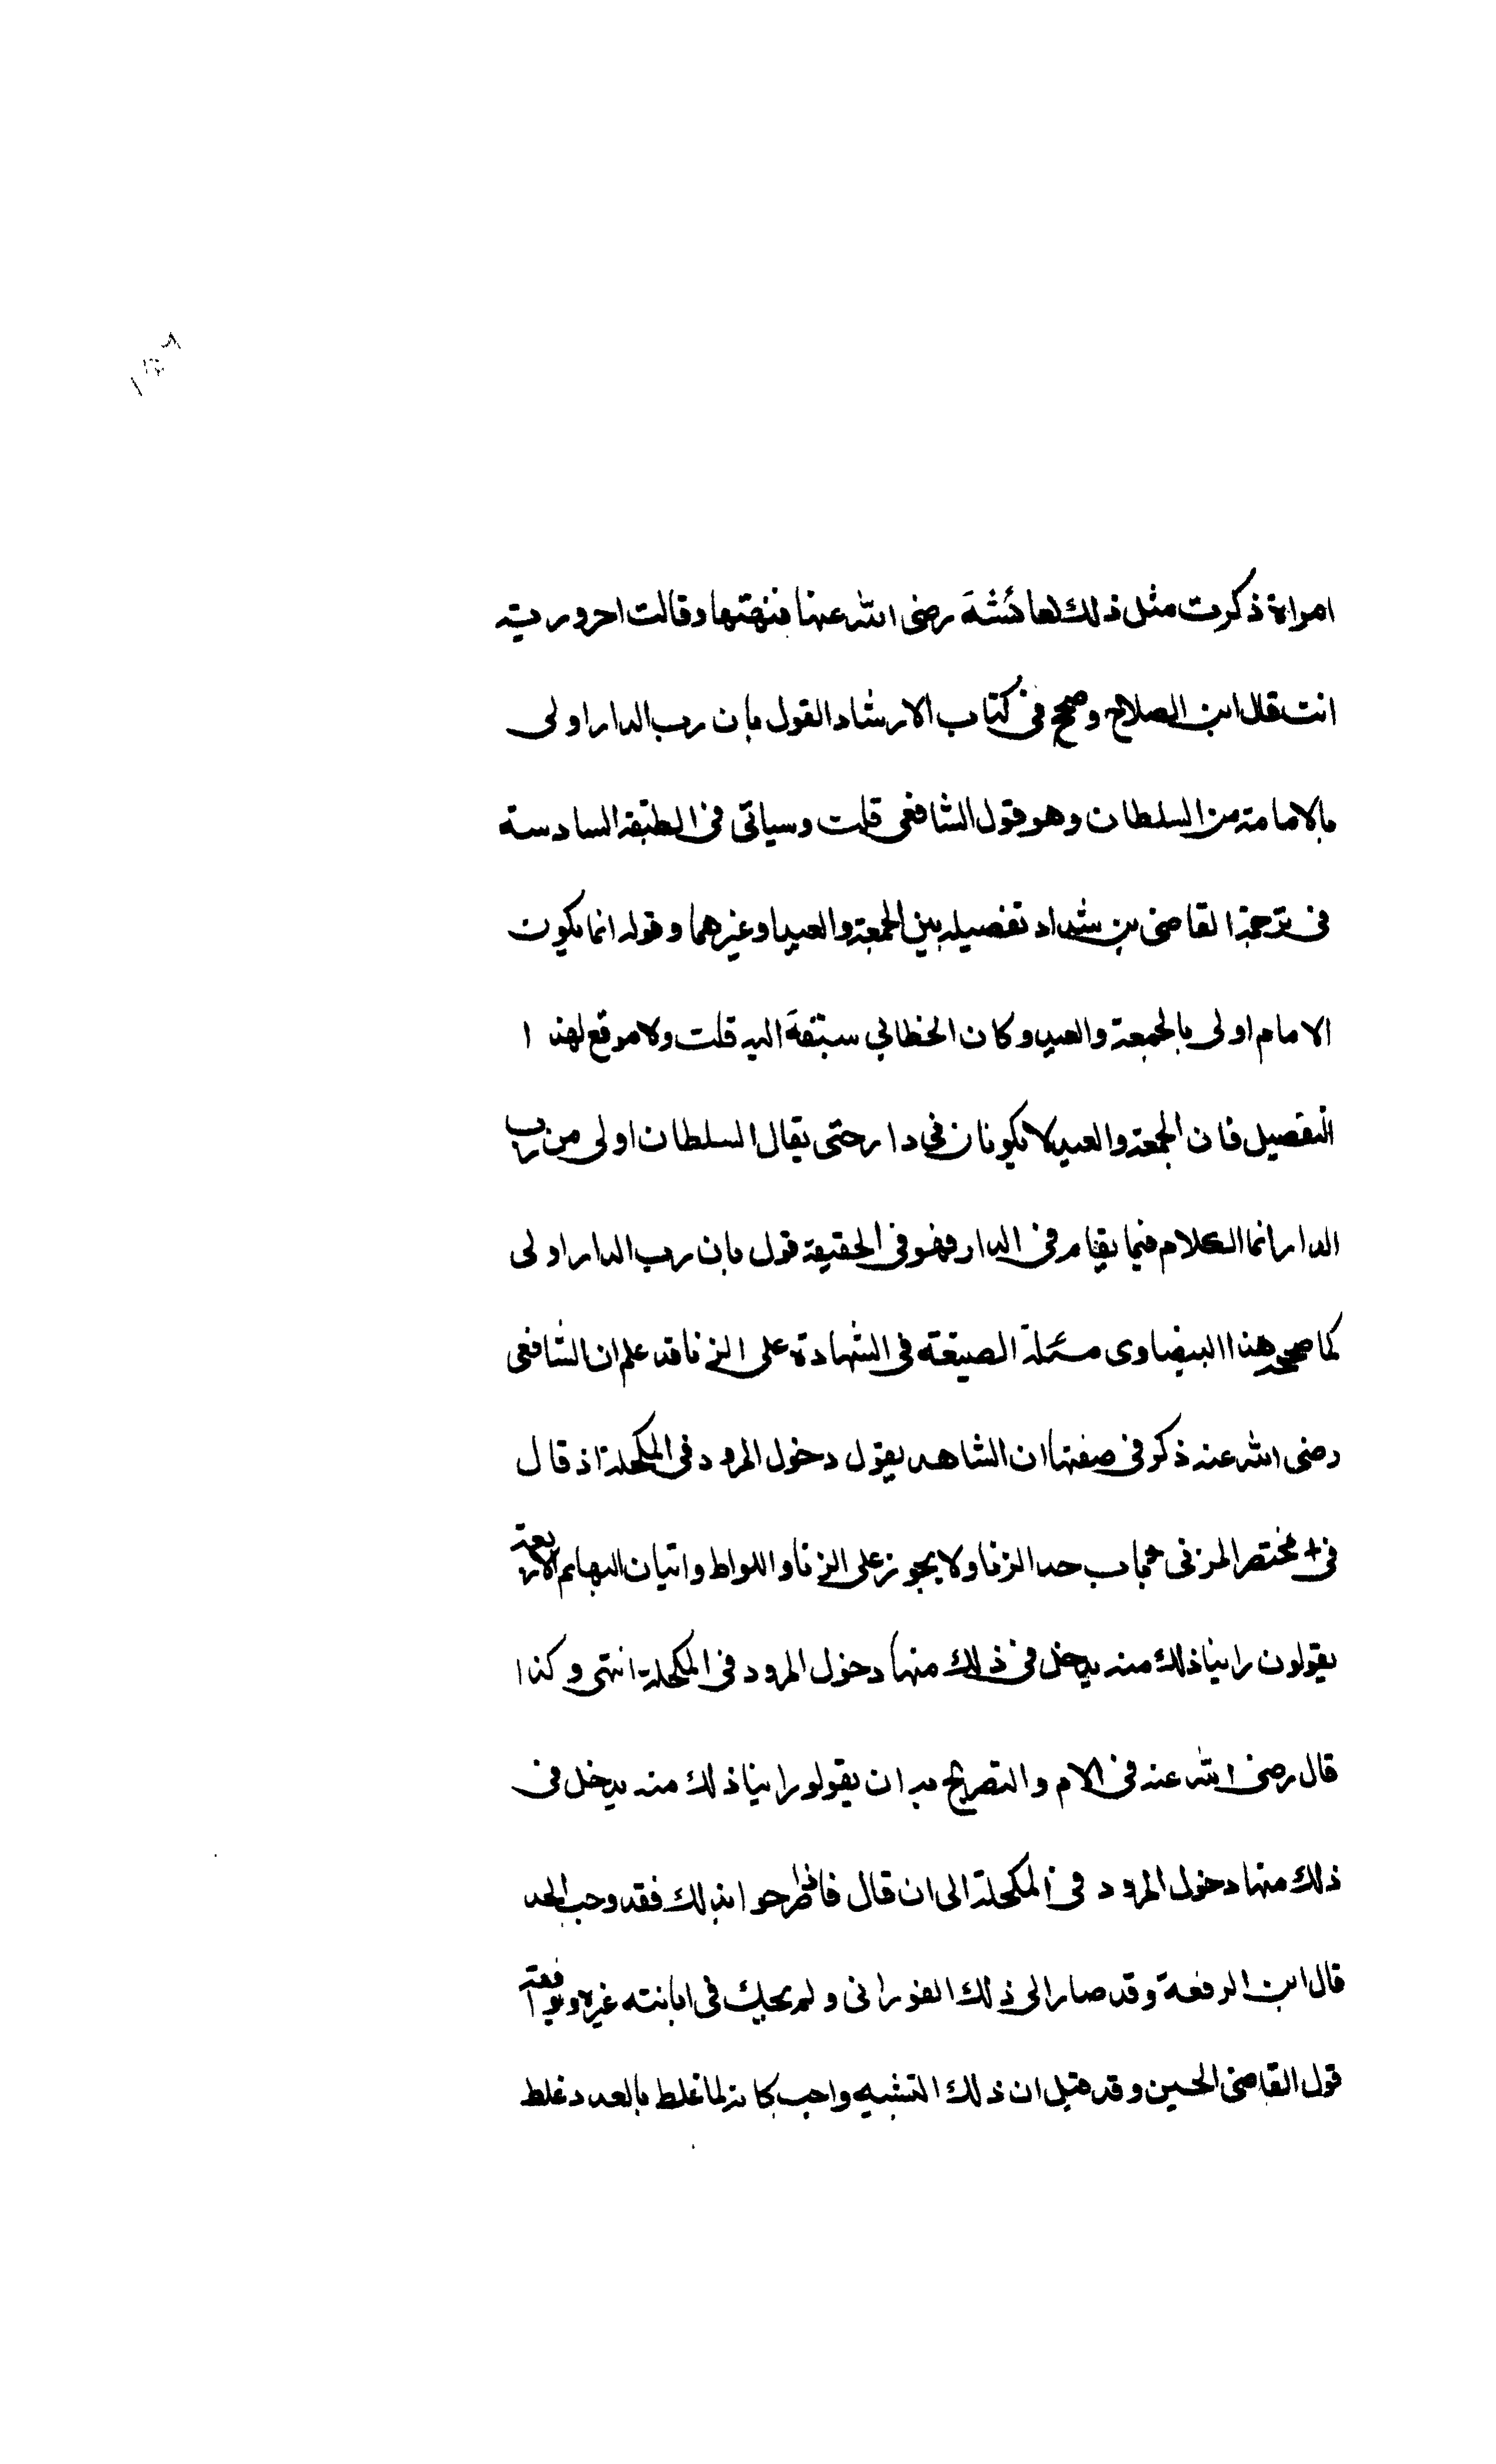 امراة ذكرت مثل ذلك لعائشة رضى الله عنها فنهتها وقالت احرورية
انت قال ابن الصلاح وصحح فى كتاب الارشاد القول بان رب الدار اولى
بالامامة من السلطان وهو قول الشافعى قلت وسياتى فى الطبقة السادسة
فى ترجمة القاضى بن شداد تفصيله بين الجمعة والعيد وغيرهما وقوله انما يكون
الامام اولى بالجمعة والعيد وكان الخطابي سبقه اليه قلت ولا موقع لهذا
التفصيل فان الجمعة والعيد لا يكونان فى دار حتى يقال السلطان اولى من رب
الدار انما الكلام فيما يقام فى الدار فهو فى الحقيقة قول بان رب الدار اولى
كما صححه هذا البيضاوى مسئلة الصيغة فى الشهادة على الزنا قد علم ان الشافعى
رضى الله عنه ذكر فى صفتها ان الشاهد يقول دخول المرود فى المكحلة اذ قال
فى مختصر المزنى باب حد الزنا ولا يجوز على الزنا واللواط واتيان البهائم الاربعة
يقولون راينا ذلك منه يدخل فى ذلك منها دخول المرود فى المكحلة انتهى وكذا
قال رضى الله عنه فى الام والتصريح به ان يقولو راينا ذلك منه يدخل فى
ذلك منها دخول المرود فى المكحلة الى ان قال فاذا صرحوا بذلك فقد وجب الحد
قال ابن الرفعة وقد صار الى ذلك الفورانى ولم يحك فى ابانته غيره ويوافقه
قول القاضى الحسين وقد قيل ان ذلك التشبيه واجب كانه لما غلط بالعدد غلط